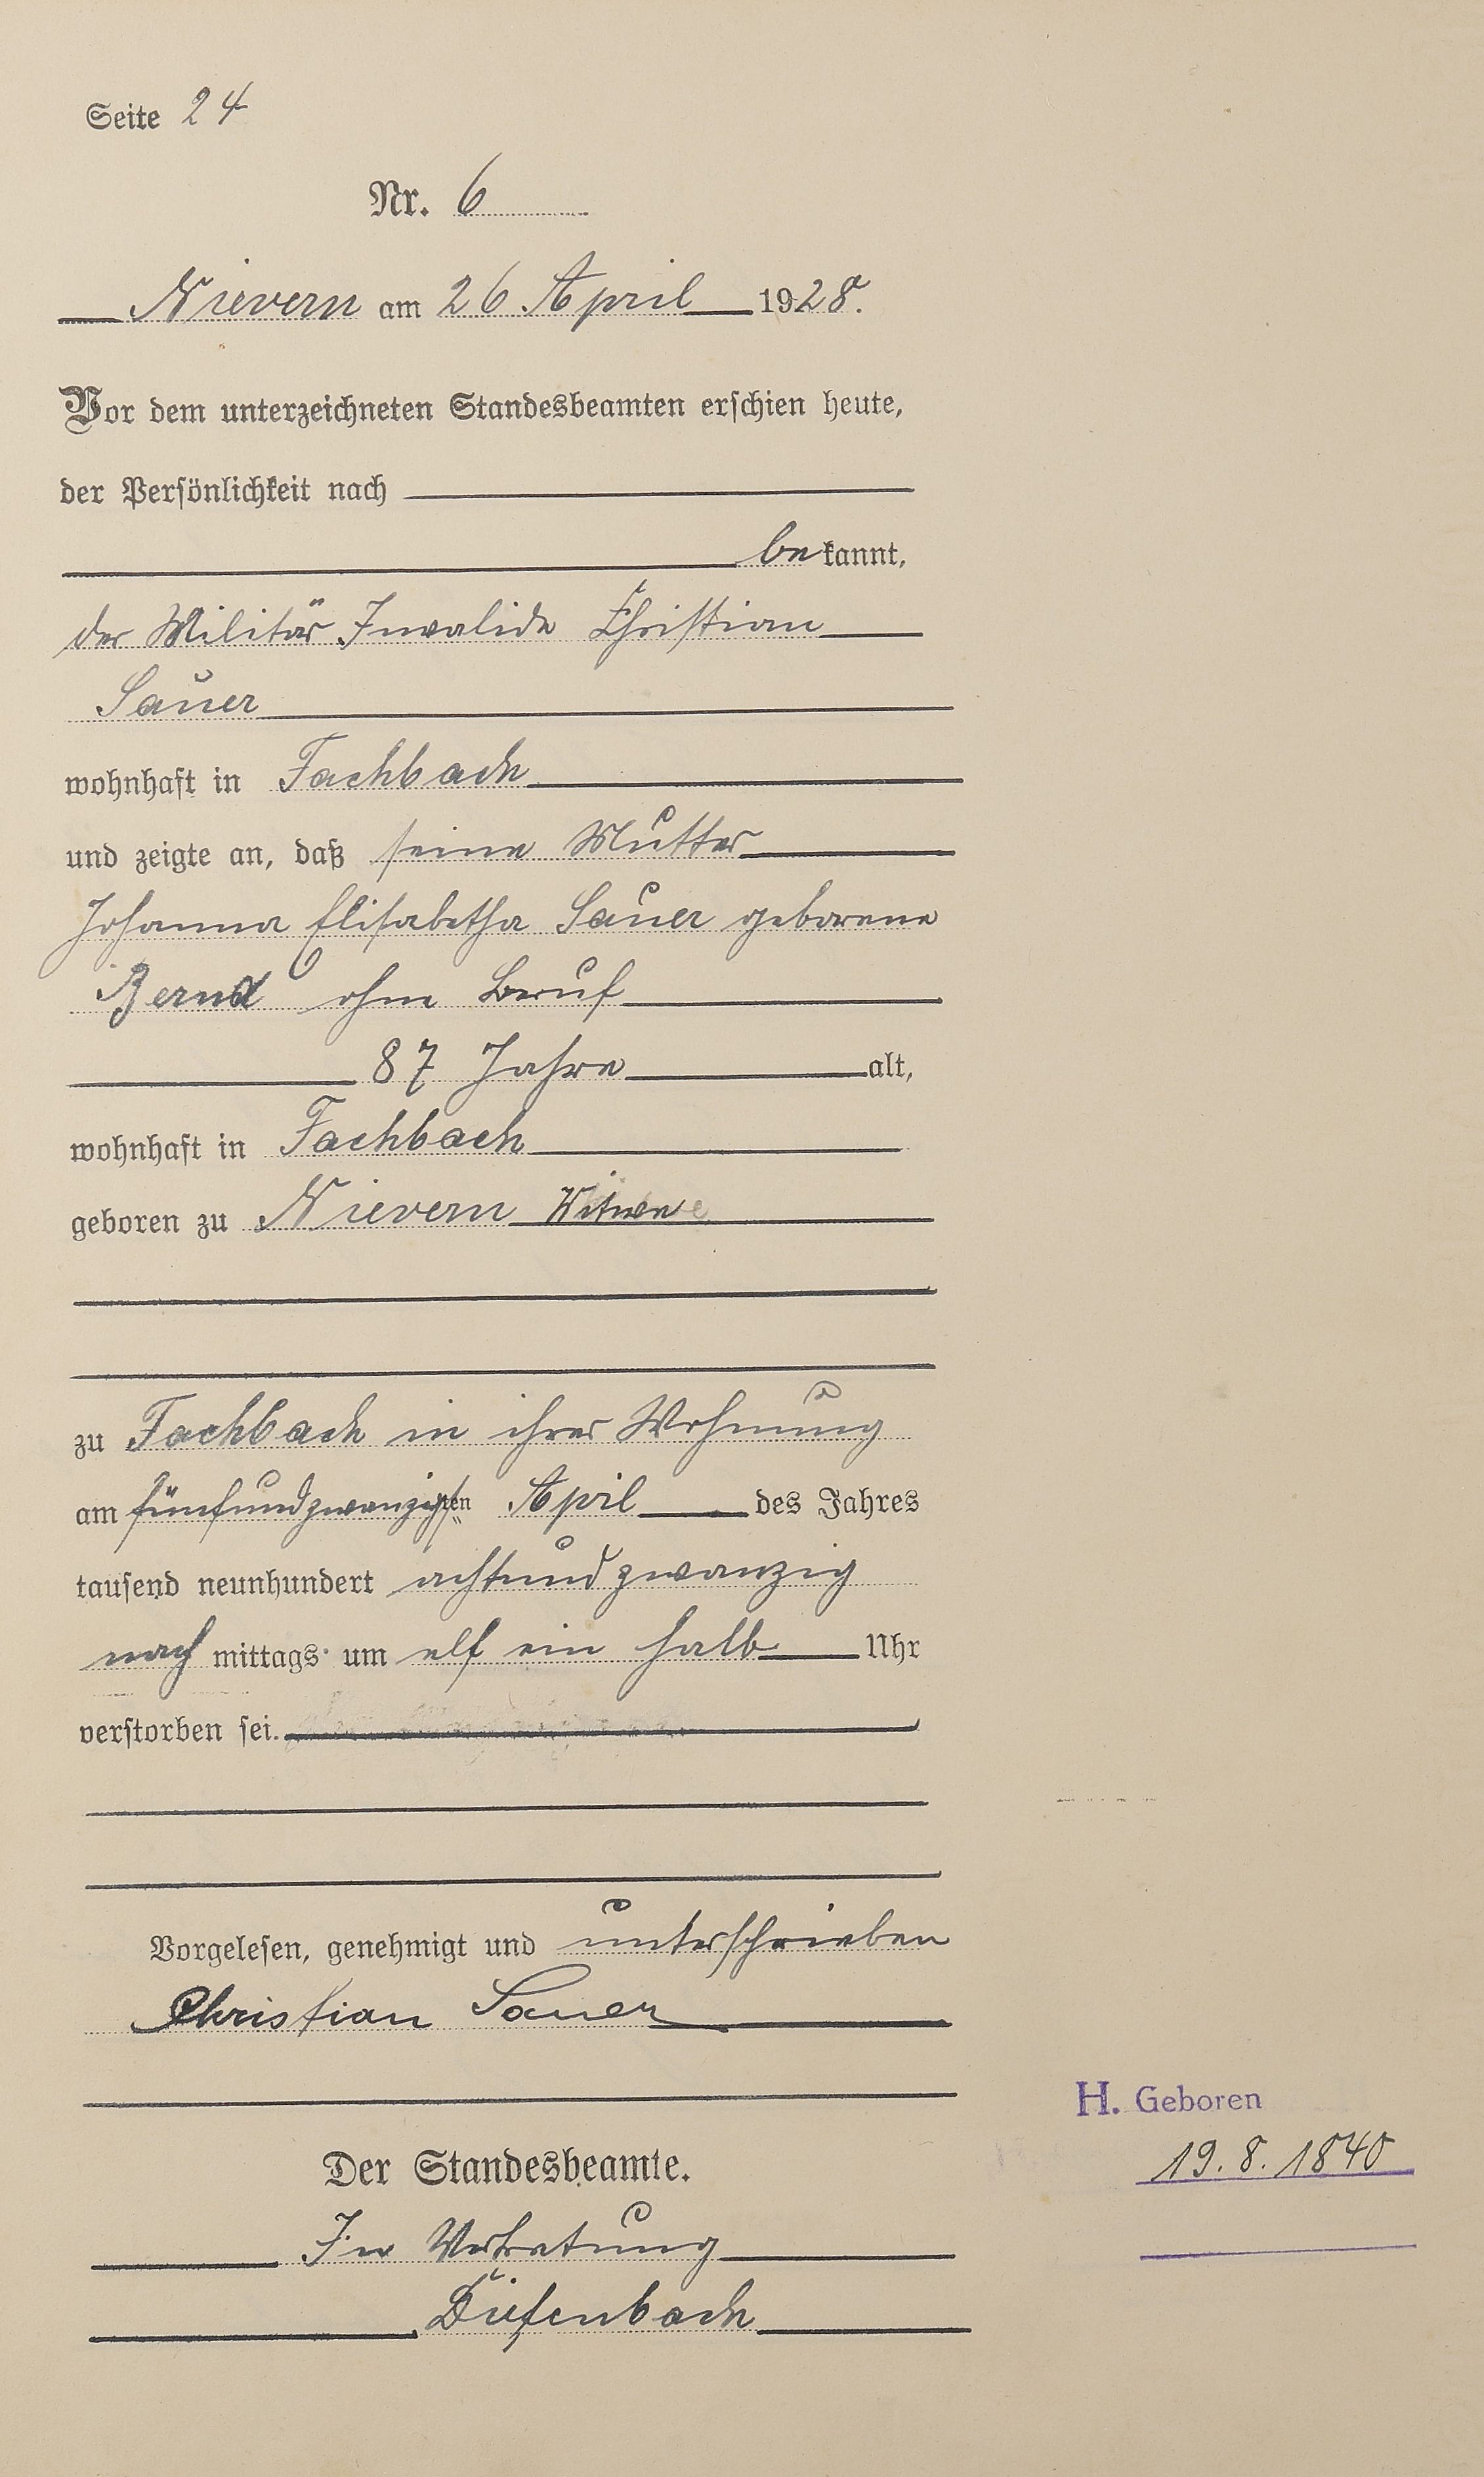 Seite 24
Nr. 6
Nievern am 26 April 1928.
Vor dem unterzeichneten Standesbeamten erschien heute,
der Persönlichkeit nach
be kannt,
der Militär Invalide Christian
Sauer
wohnhaft in Fachbach
und zeigte an, daß seine Mutter
Johanna Elisabetha Sauer geborene
Bernd ohne Beruf
87 Jahre alt,
wohnhaft in Fachbach
geboren zu Nievern Witwe
zu Fachbach in ihrer Wohnung
am fünfundzwanzigsten April des Jahres
tausend neunhundert achtundzwanzig
nach mittags um elf ein halb Uhr
verstorben sei.
Vorgelesen, genehmigt und unterschrieben
Christian Sauer
Der Standesbeamte.
In Vertretung
Diefenbach
H. Geboren
19. 8. 1840